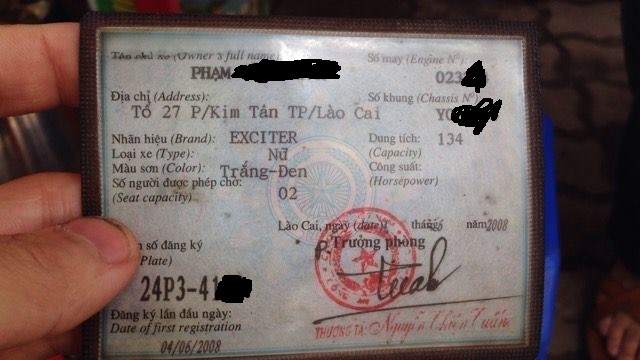 Tên chủ xe (Owner's full name)
Số máy (Engine Nº)
PHẠM
023
Địa chỉ (Address):
Số khung (Chassis Nº)
Tổ 27 P/Kim Tân TP/Lào Cai
Nhãn hiệu (Brand): EXCITER
Dung tích: 134
(Capacity)
Loại xe (Type): Nữ
Màu sơn (Color): Trắng-Đen
Công suất:
(Horsepower)
Số người được phép chở: 02
(Seat capacity)
Lào Cai, ngày (date) tháng 6 năm 2008
P. Trưởng phòng
n số đăng ký
Plate)
24P3-41
Đăng ký lần đầu ngày:
Date of first registration
04/06/2008
THƯỢNG TÁ: Nguyễn Chiến Tuấn